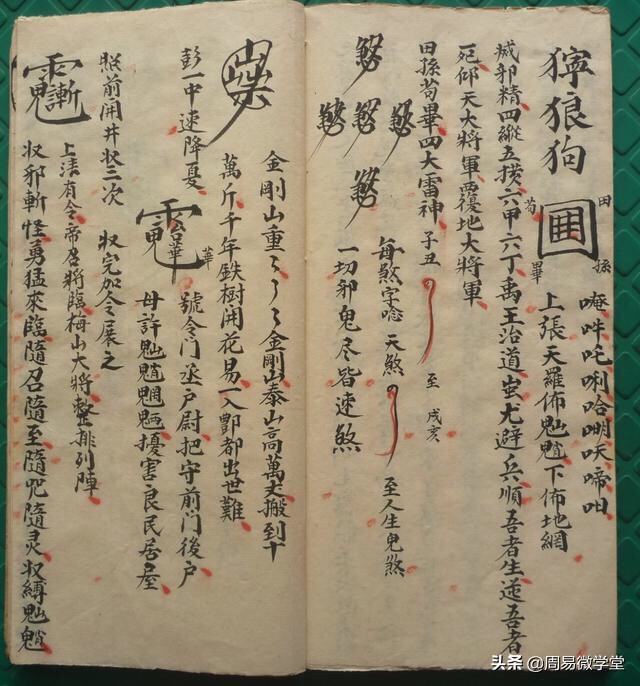 獰狼狗
田 孫 苟 畢
唵吽吒唎哈𠵇呅啼呬
上張天羅佈魁魓下佈地網
滅邪精四縱五橫六甲六丁禹王治道蚩尤避兵順吾者生逆吾者
死仰天大將軍覆地大將軍
田孫苟畢四大雷神子丑 至戌亥
每煞字唸 天煞 至人生鬼煞
一切邪鬼尽皆速煞
金剛山重々々々金剛山泰山高萬丈搬到十
萬斤千年鉄樹開花易一入酆都出世難
彭一中速降憂
華
號令门丞户尉把守前门後户
毋許擾害良民居屋
照前開井収三次 収完加令展之
上清有令帝座將臨梅山大將整排列陣
収邪斬怪勇猛來臨隨召隨至隨咒隨灵収縛
头条 @周易微学堂